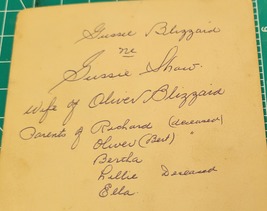 Gussie Blizzaid
ne
Gussie Shaw.
Wife of Oliver Blizzaid
Parents of Richard (deceased)
Oliver (Bert) "
Bertha
Lillie Deceased
Ella